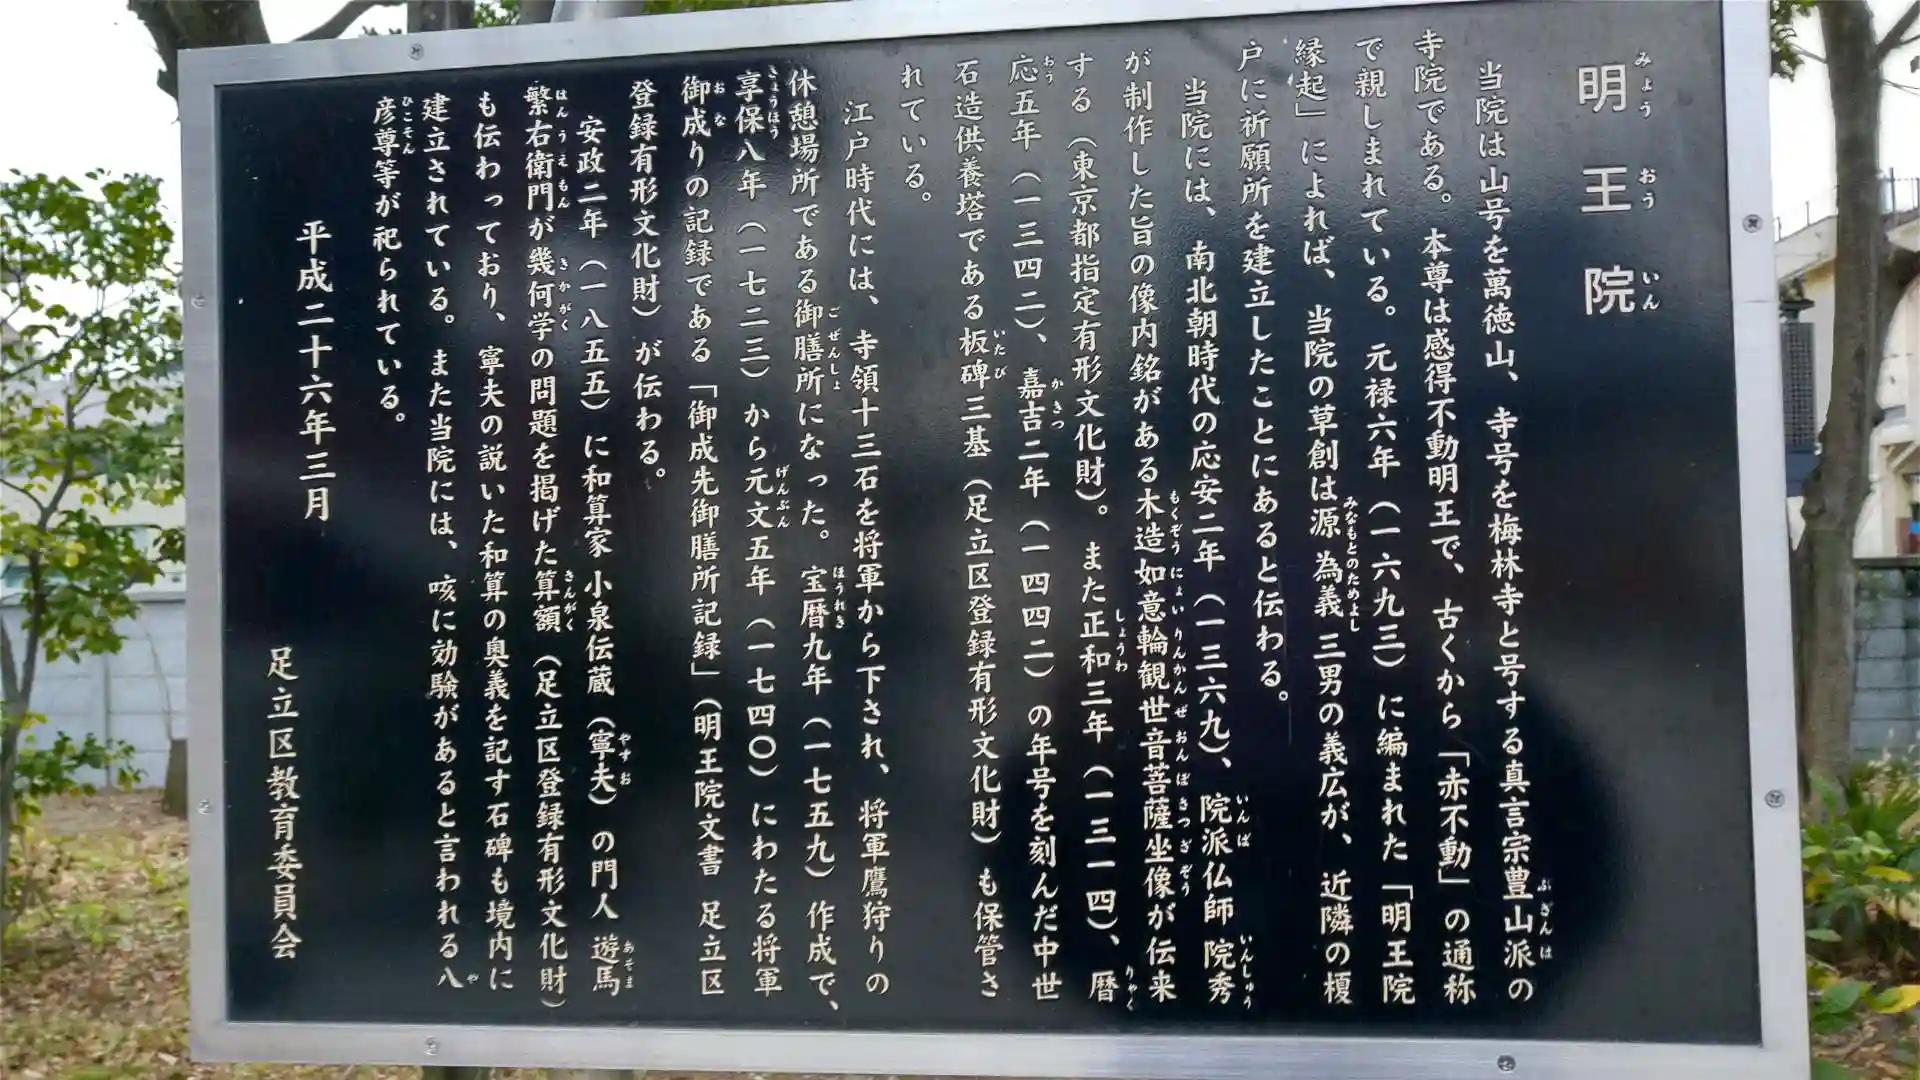 明王院
当院は山号を萬徳山、寺号を梅林寺と号する真言宗豊山派の
寺院である。本尊は感得不動明王で、古くから「赤不動」の通称
で親しまれている。元禄六年（一六九三）に編まれた「明王院
縁起」によれば、当院の草創は源為義三男の義広が、近隣の榎
戸に祈願所を建立したことにあると伝わる。
当院には、南北朝時代の応安二年（一三六九）、院派仏師院秀
が制作した旨の像内銘がある木造如意輪観世音菩薩坐像が伝来
する（東京都指定有形文化財）。また正和三年（一三一四）、暦
応五年（一三四二）、嘉吉二年（一四四二）の年号を刻んだ中世
石造供養塔である板碑三基（足立区登録有形文化財）も保管さ
れている。
江戸時代には、寺領十三石を将軍から下され、将軍鷹狩りの
休憩場所である御膳所になった。宝暦九年（一七五九）作成で、
享保八年（一七二三）から元文五年（一七四〇）にわたる将軍
御成りの記録である「御成先御膳所記録」（明王院文書　足立区
登録有形文化財）が伝わる。
安政二年（一八五五）に和算家小泉伝蔵（寧夫）の門人遊馬
繁右衛門が幾何学の問題を掲げた算額（足立区登録有形文化財）
も伝わっており、寧夫の説いた和算の奥義を記す石碑も境内に
建立されている。また当院には、咳に効験があると言われる八
彦尊等が祀られている。
平成二十六年三月
足立区教育委員会